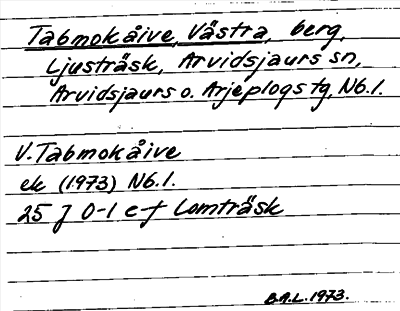 Tabmokåive, Västra, berg,
Ljusträsk, Arvidsjaurs sn,
Arvidsjaurs o. Arjeplogs tg, Nb.l.
V. Tabmokåive
ek (1973) Nb.l.
25 J 0-1 e-f Lomträsk
B.A.L. 1973.